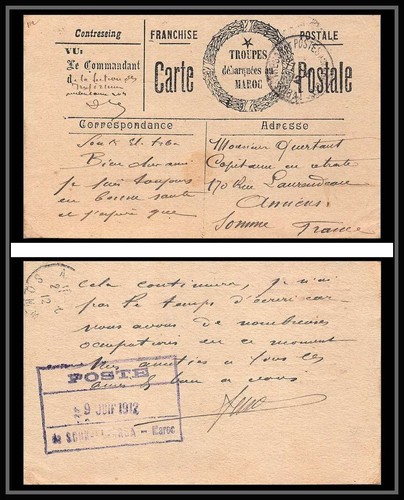 Contreseing
VU:
Le Commandant
d
FRANCHISE
POSTALE
Carte
Postale
TROUPES
débarquées au
MAROC
POSTES
Correspondance
Adresse
Souk el Arba
Bien cher ami
je suis toujours
en bonne santé
et j'espère que
Monsieur Quertant
Capitaine en retraite
170 Rue Laurendeau
Amiens
Somme France
cela continuera, je n'ai
pas le temps d'écrire car
nous avons de nombreuses
occupations en ce moment
Mes amitiés à tous les
amis &
à vous
POSTE
9 JUIF 1912
de SOUK - Maroc